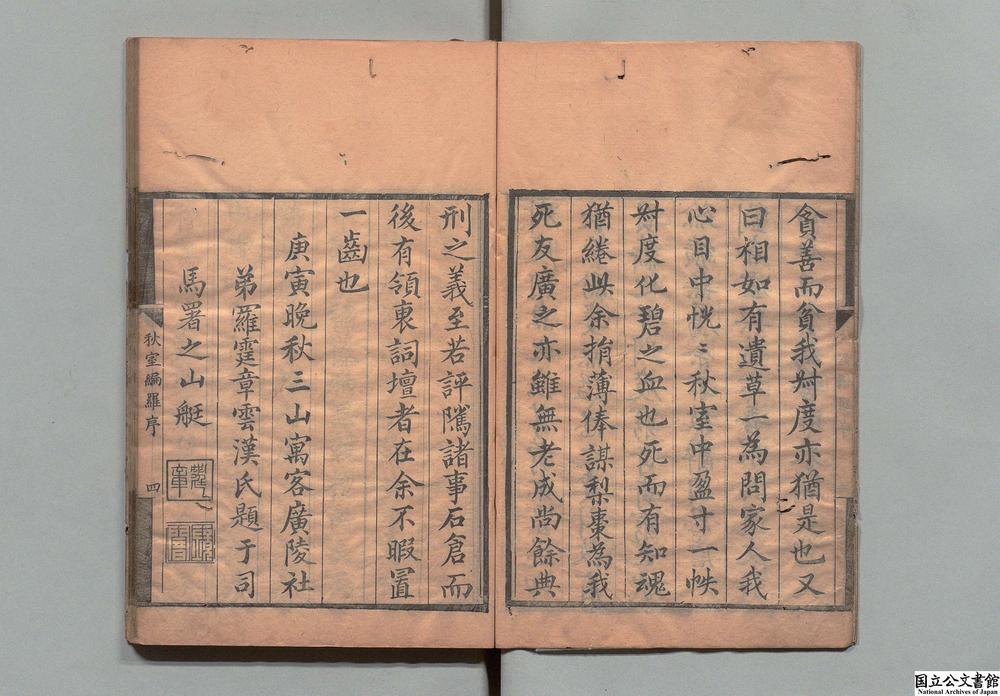 貪善而貧我尌度亦猶是也又
曰相如有遺草一為問家人我
心目中恍〻秋室中盈寸一帙
尌度化碧之血也死而有知魂
猶綣此余捐薄俸謀梨棗為我
死友廣之亦雖無老成尚餘典
刑之義至若評隲諸事石倉而
後有領袠詞壇者在余不暇置
一齒也
庚寅晚秋三山寓客廣陵社
弟羅霆章雲漢氏題于司
馬署之山艇
秋室編羅序
四
国立公文書館
National Archives of Japan